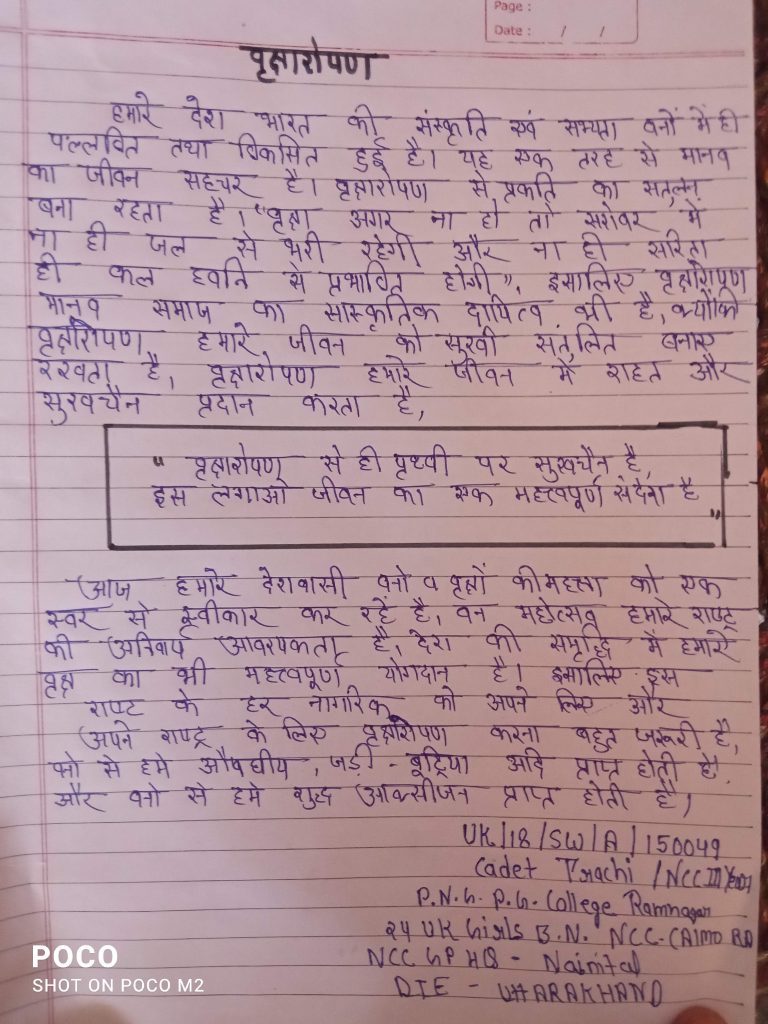 Page :
Date : / /
वृक्षारोपण
हमारे देश भारत की संस्कृति एवं सभ्यता वनों में ही
पल्लवित तथा विकसित हुई है। यह एक तरह से मानव
का जीवन सहचर है। वृक्षारोपण से प्रकति का सतुलन
बना रहता है। "वृक्ष अगर ना हो तो सरोवर में
ना ही जल से भरी रहेगी और ना ही सरिता
ही कल ध्वनि से प्रभावित होगी", इसालिए वृक्षारोपण
मानव समाज का सांस्कृतिक दायित्व भी है, क्योंकि
वृक्षारोपण हमारे जीवन को सुखी संतुलित बनाए
रखता है, वृक्षारोपण हमारे जीवन में राहत और
सुखचैन प्रदान करता है,
" वृक्षारोपण से ही पृथ्वी पर सुखचैन है,
इस लगाओ जीवन का एक महत्त्वपूर्ण संदेश है "
आज हमारे देशवासी वनो व वृक्षों की महत्ता को एक
स्वर से स्वीकार कर रहे है, वन महोत्सव हमारे राष्ट्र
की अनिवार्य आवश्यकता है, देश की समृद्धि में हमारे
वृक्ष का भी महत्त्वपूर्ण योगदान है। इसालिए इस
राष्ट के हर नागरिक को अपने लिए और
अपने राष्ट्र के लिए वृक्षारोपण करना बहुत जरूरी है,
से हमे औषधीय, जड़ी - बूट्रिया आदि प्राप्त होती है
और वनो से हमे शुद्ध आक्सीजन प्राप्त होती है।
UK/18/SW/A/150049
Cadet Prachi / NCC III Year
P.N.G. P.G. College Ramnagar
24 UK Girls B.N. NCC
NCC GP HQ - Nainital
DTE - UttARAKHAND
POCO
SHOT ON POCO M2